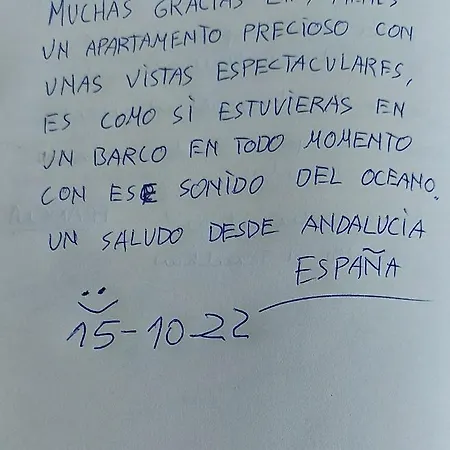 MUCHAS GRACIAS
UN APARTAMENTO PRECIOSO CON
UNAS VISTAS ESPECTACULARES,
ES COMO SI ESTUVIERAS EN
UN BARCO EN TODO MOMENTO
CON ESE SONIDO DEL OCEANO.
UN SALUDO DESDE ANDALUCIA
ESPAÑA
15-10-22